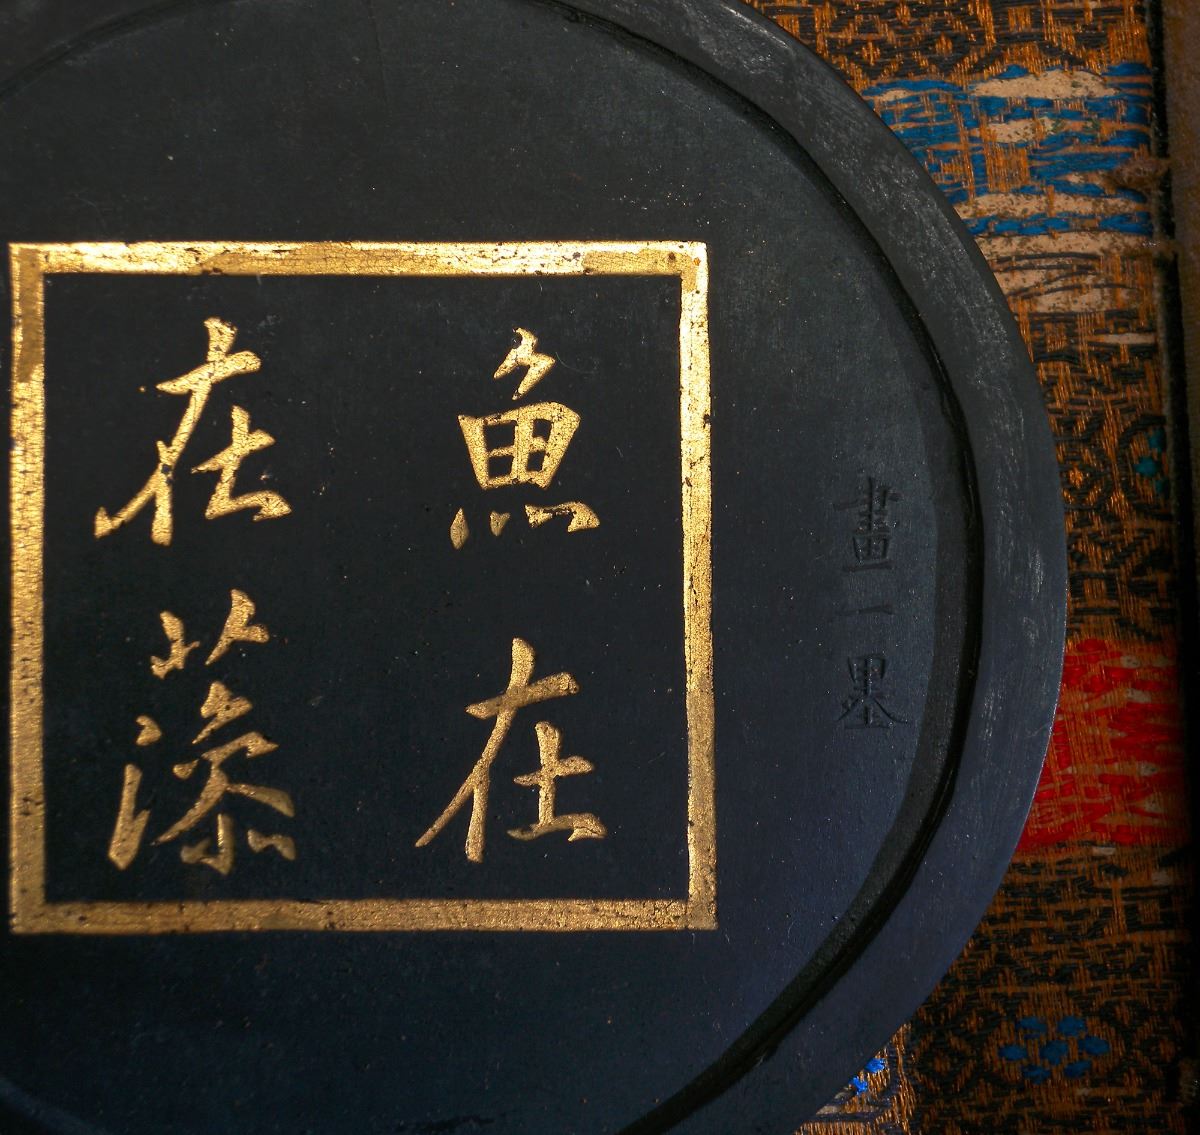 畫一墨
魚在
在藻